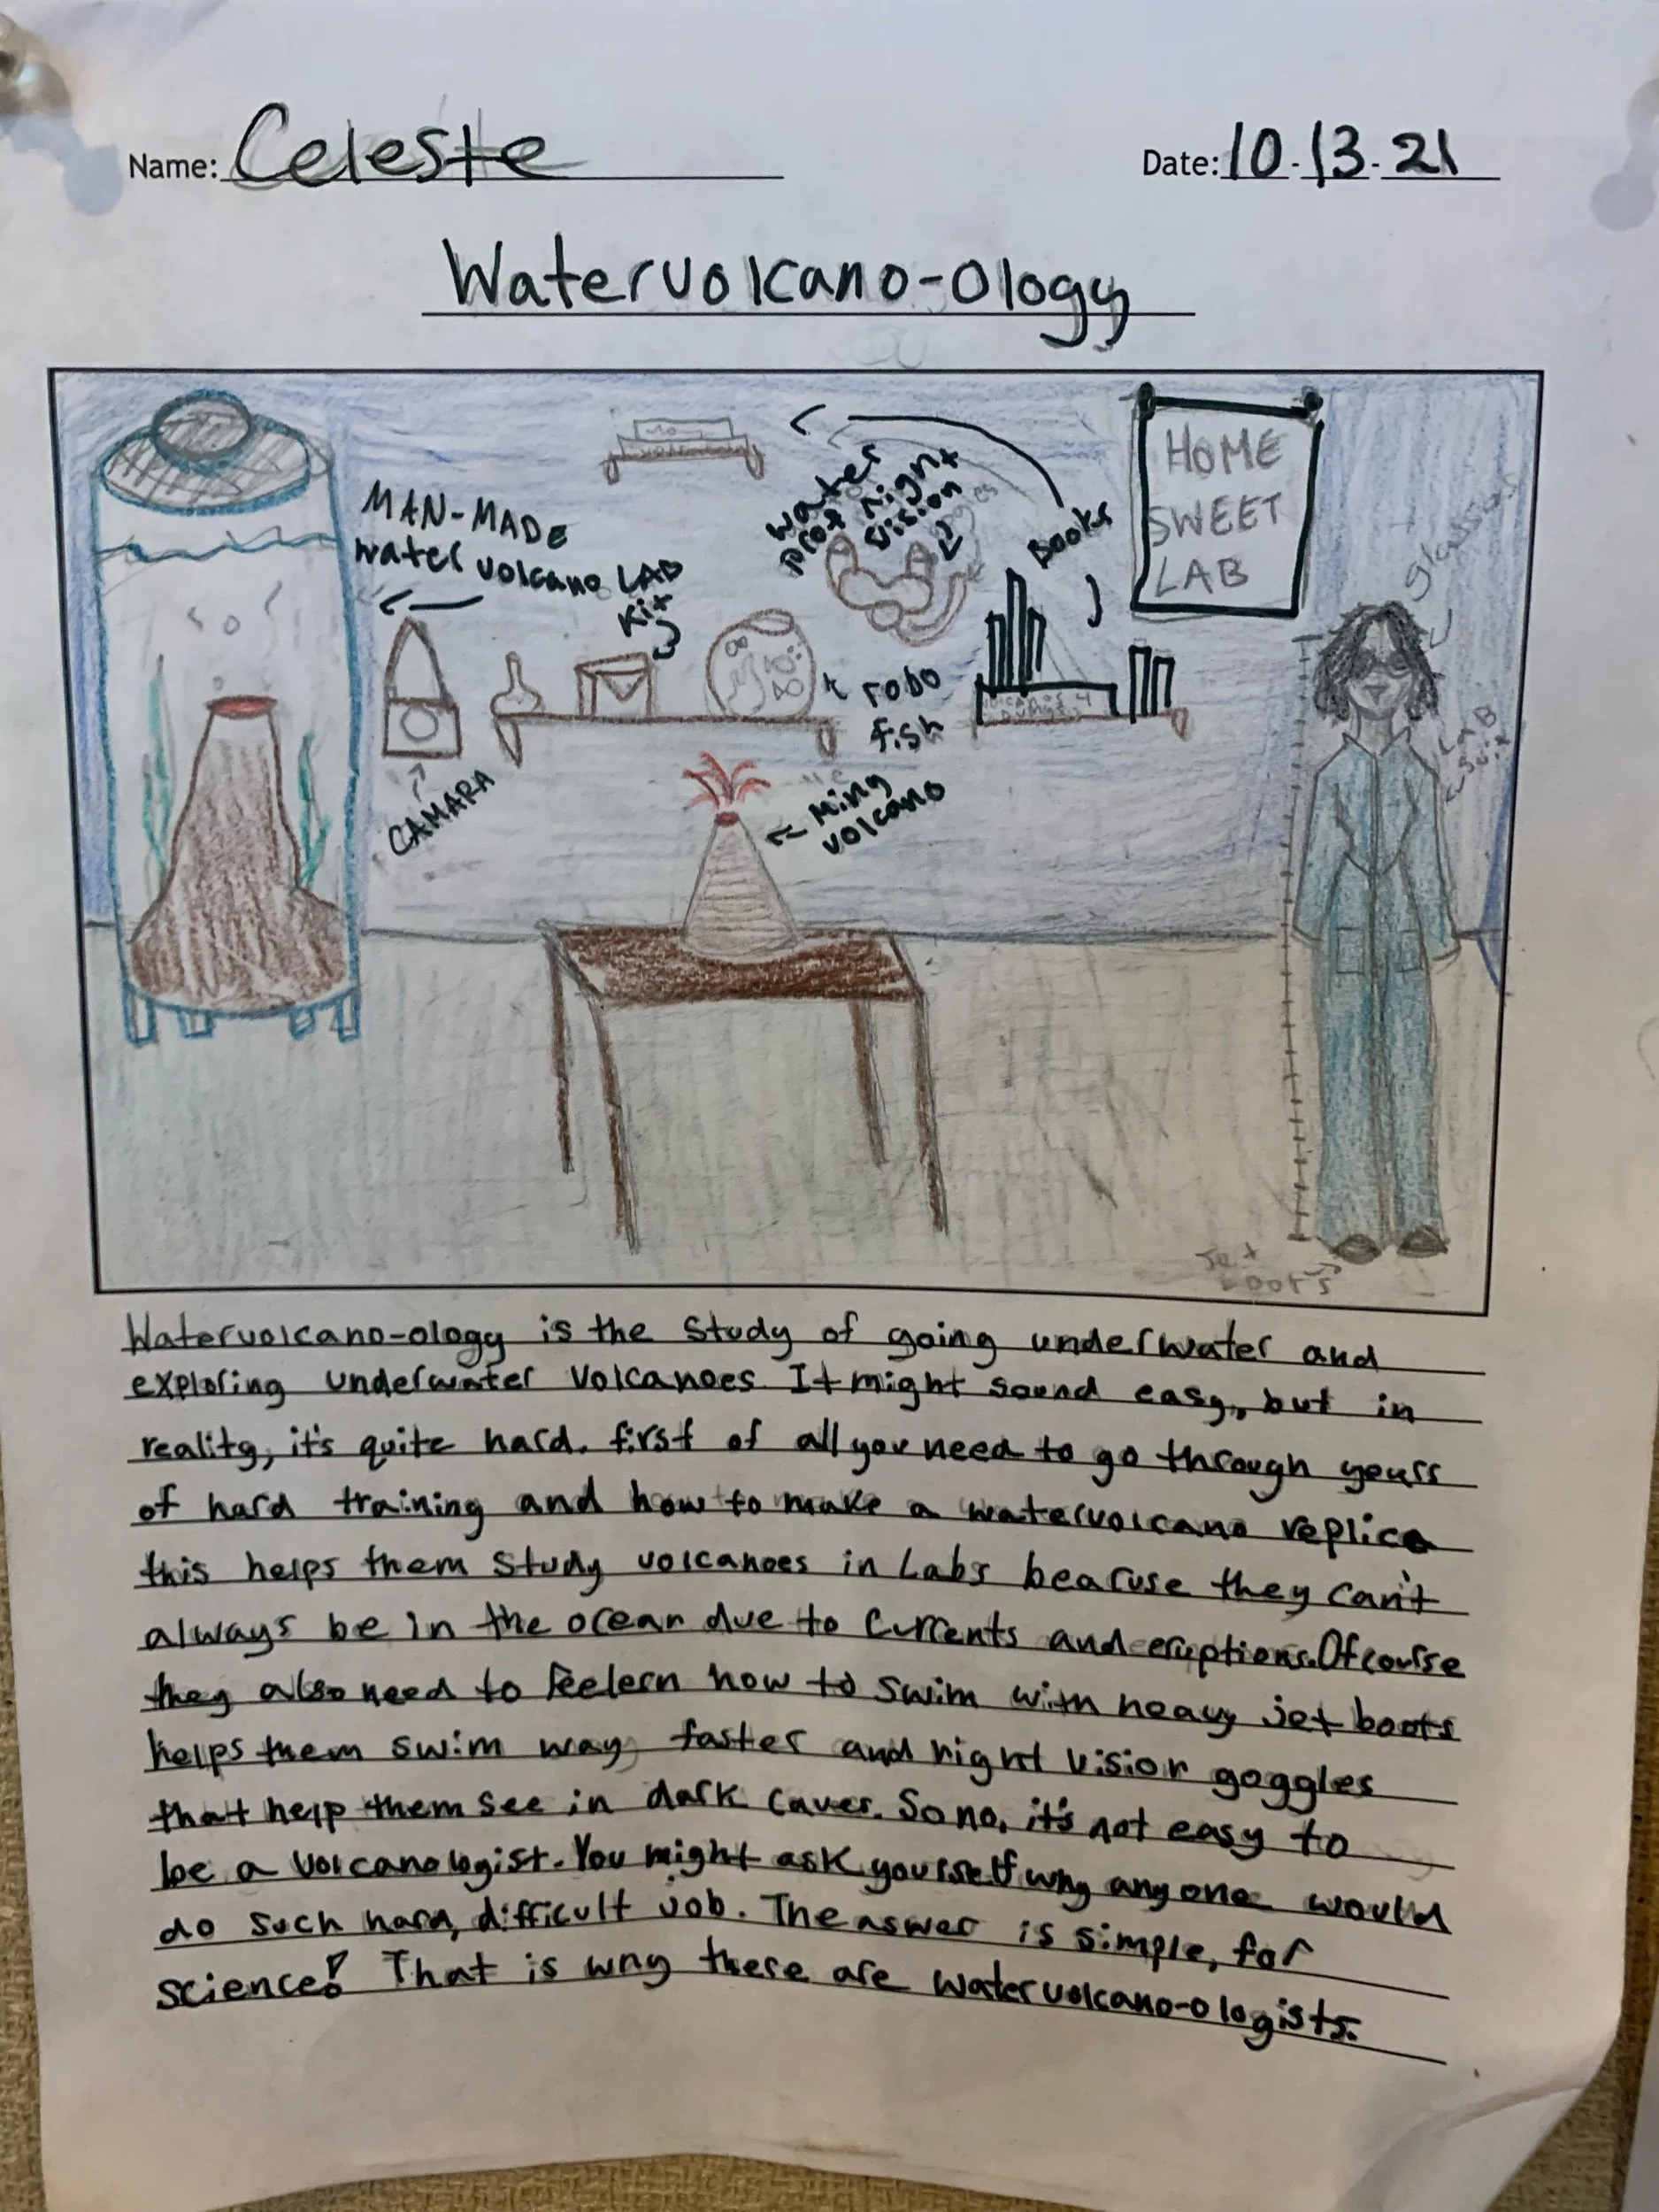 Name: Celeste
Date: 10-13-21
Watervolcano-ology
MAN-MADE
water volcano
LAB
Kit
water
prof night
vision
Books
HOME
SWEET
LAB
glasses
robo
fish
CAMARA
Ming
volcano
LAB
suit
Jet
boots
Watervolcano-ology is the study of going underwater and
exploring underwater volcanoes. It might sound easy, but in
reality, it's quite hard. first of all you need to go through years
of hard training and how to make a watervolcano replica
this helps them study volcanoes in Labs bearuse they can't
always be in the ocean due to currents and eruptions. Of course
they also need to learn how to swim with heavy jet boots
helps them swim way faster and night vision goggles
that help them see in dark caves. So no, it's not easy to
be a volcanologist. You might ask yourself why anyone would
do such hard, difficult job. The aswer is simple, for
science! That is why there are watervolcano-ologists.